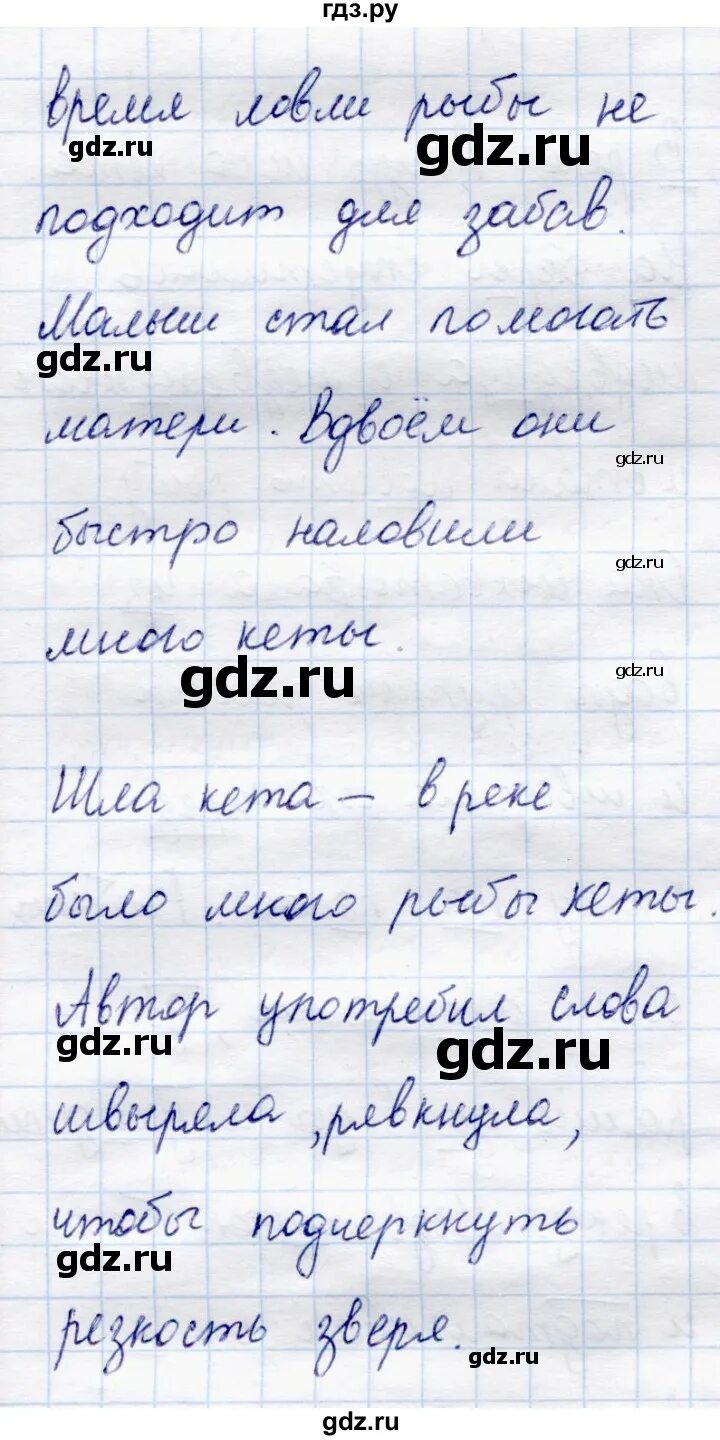 гдз.ру
время ловли рыбы не
gdz.ru
gdz.ru
подходит для забав.
Малыш стал помогать
gdz.ru
матери. Вдвоём они
gdz.ru
быстро наловили
gdz.ru
много кеты.
gdz.ru
gdz.ru
Шла кета – в реке
было много рыбы кеты.
Автор употребил слова
gdz.ru
gdz.ru
швыряла, рявкнула,
чтобы подчеркнуть
gdz.ru
резкость зверя.
gdz.ru
gdz.ru